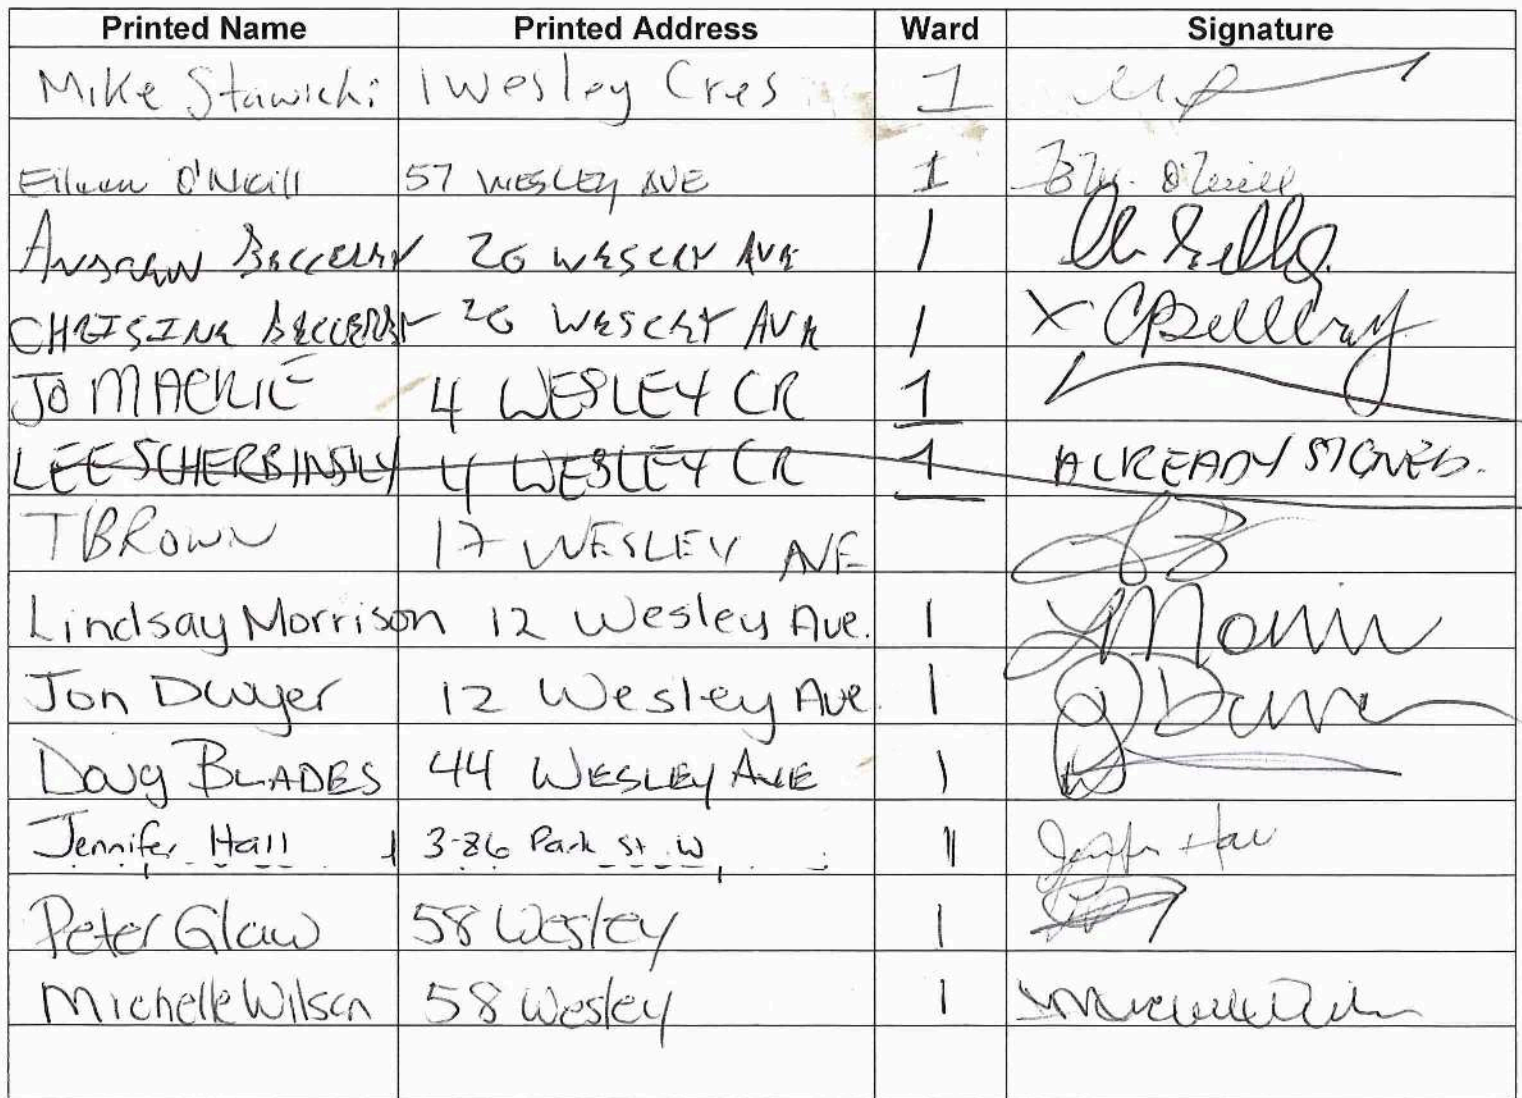 Printed Name Printed Address Ward Signature
Mike Stawicki 1 Wesley Cres 1
Eileen O'Neill 57 WESLEY AVE 1
ANDREW BELLERBY 26 WESLEY AVE 1
CHRISINE BELLERBY 26 WESLEY AVE 1 X CBellerby
JO MACKIE 4 WESLEY CR 1
LEE SCHERBINSKY 4 WESLEY CR 1 ALREADY SIGNED.
T BROWN 17 WESLEY AVE
Lindsay Morrison 12 Wesley Ave. 1
Jon Dwyer 12 Wesley Ave. 1
Doug BLADES 44 WESLEY AVE 1
Jennifer Hall 3-86 Park St W 1 Jennifer Hall
Peter Glaw 58 Wesley 1
Michelle Wilson 58 Wesley 1 Michelle Wilson